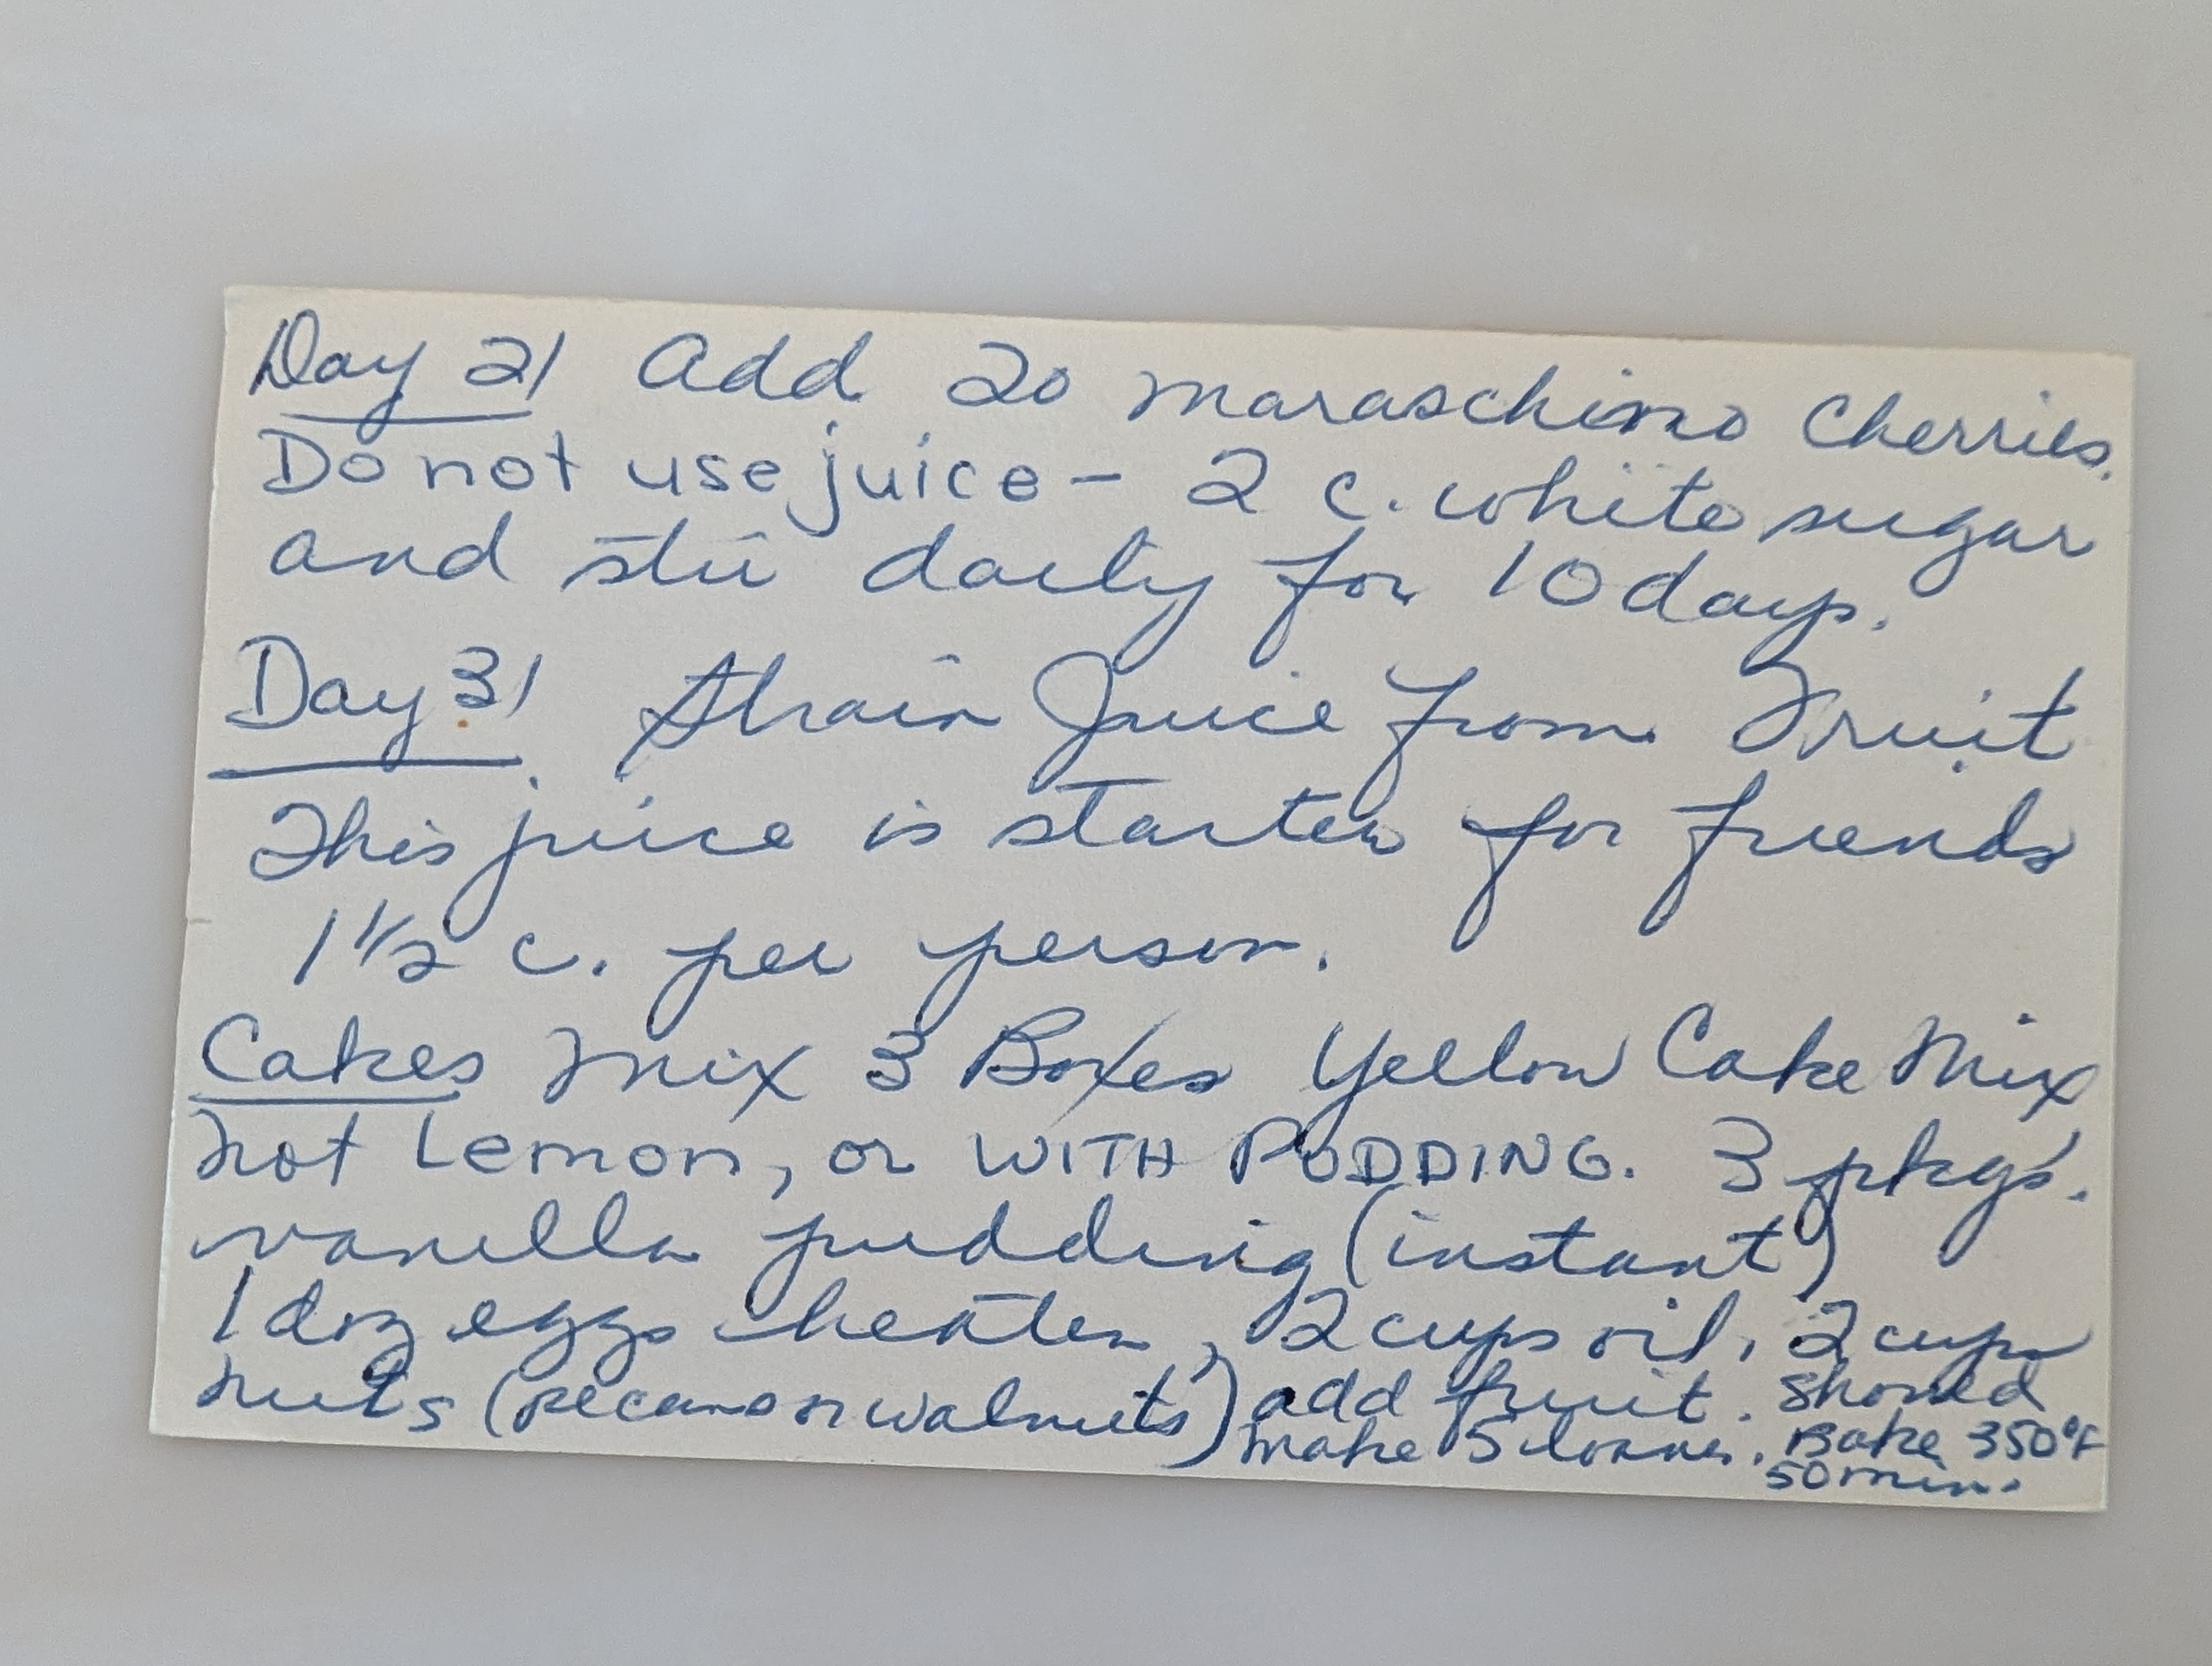 Day 21 Add 20 maraschino Cherries.
Do not use juice - 2 c. white sugar
and stir daily for 10 days.
Day 31 Strain Juice from Fruit
This juice is starter for friends
1 1/2 c. per person.
Cakes Mix 3 Boxes Yellow Cake Mix
not Lemon, or WITH PUDDING. 3 pkgs.
vanilla pudding (instant)
1 doz eggs beaten, 2 cups oil, 2 cups
nuts (pecans or walnuts) add fruit. Should
make 5 loaves. Bake 350°F
50 min.